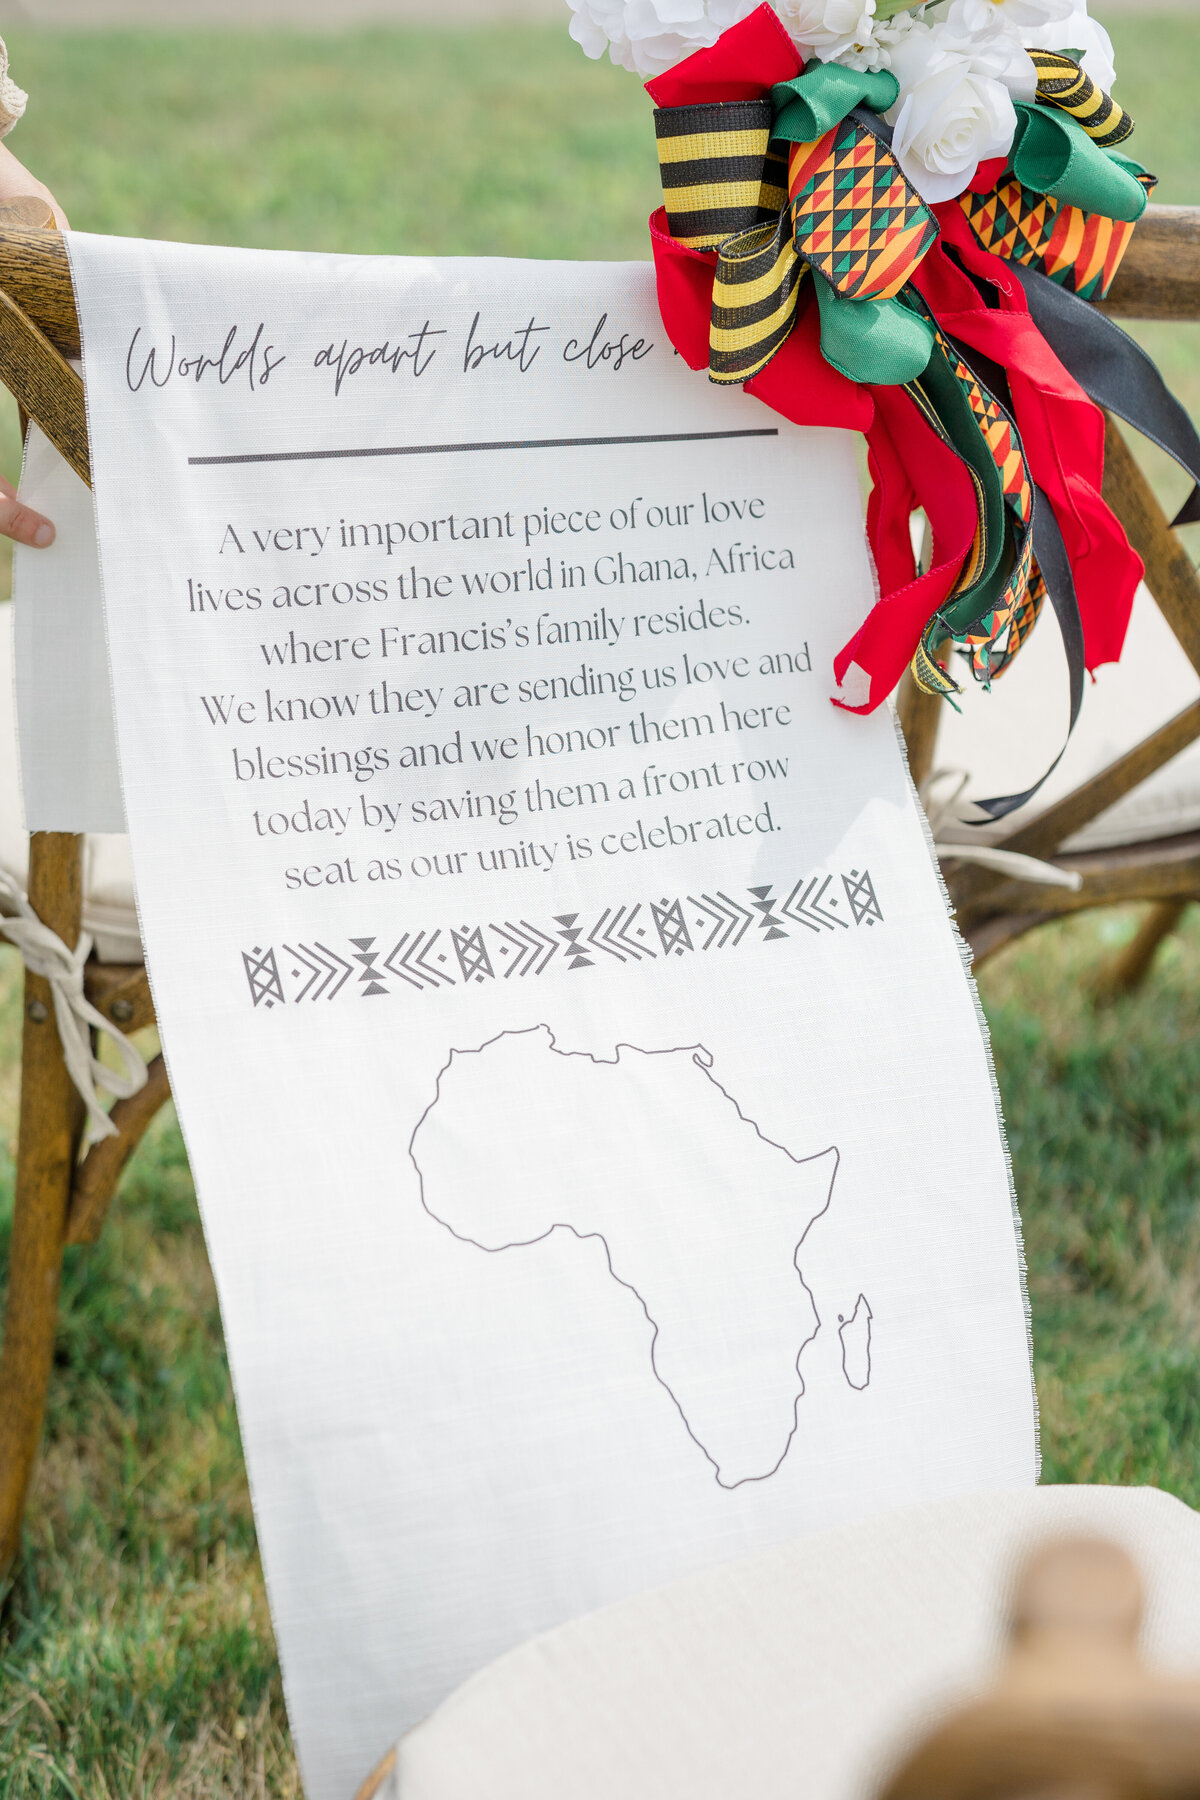 Worlds apart but close
A very important piece of our love
lives across the world in Ghana, Africa
where Francis's family resides.
We know they are sending us love and
blessings and we honor them here
today by saving them a front row
seat as our unity is celebrated.